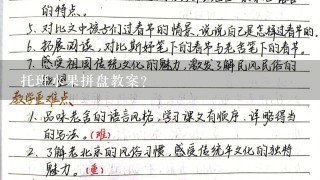 的特点。
5. 对比文中孩子们过春节的情景,说说自己是怎样过春节的。
6. 拓展阅读,对比斯好笔下的春节与老舍笔下的春节。
7. 感受祖国传统文化的魅力,激发了解民风民俗的
托班水果拼盘教案?
教学重难点
1. 品味老舍的语言风格,学习课文有顺序、详略得当
的写法。(难)
2. 了解老北京的风俗习惯,感受传统年文化的独特
魅力。(重)